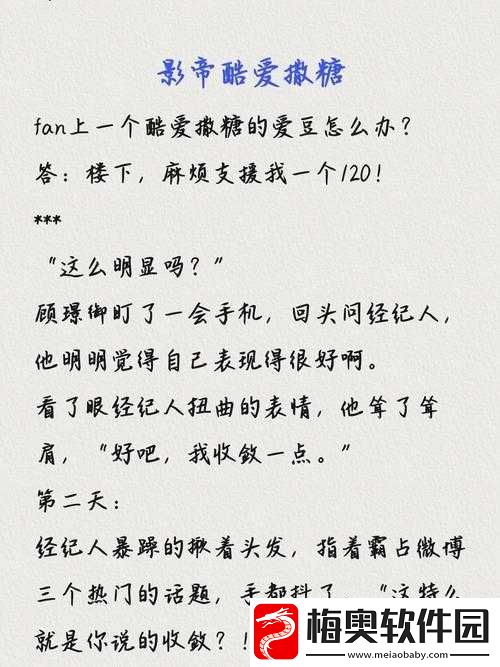 影帝酷爱撒糖
fan上一个酷爱撒糖的爱豆怎么办？
答：楼下，麻烦支援我一个120！
***
“这么明显吗？”
顾璟御盯了一会手机，回头问经纪人，
他明明觉得自己表现得很好啊。
看了眼经纪人扭曲的表情，他耸了耸
肩，“好吧，我收敛一点。”
第二天：
经纪人暴躁的揪着头发，指着霸占微博
三个热门的话题，手都抖了，“这特么
就是你说的收敛？！
梅奥软件园
www.meiaobaby.com